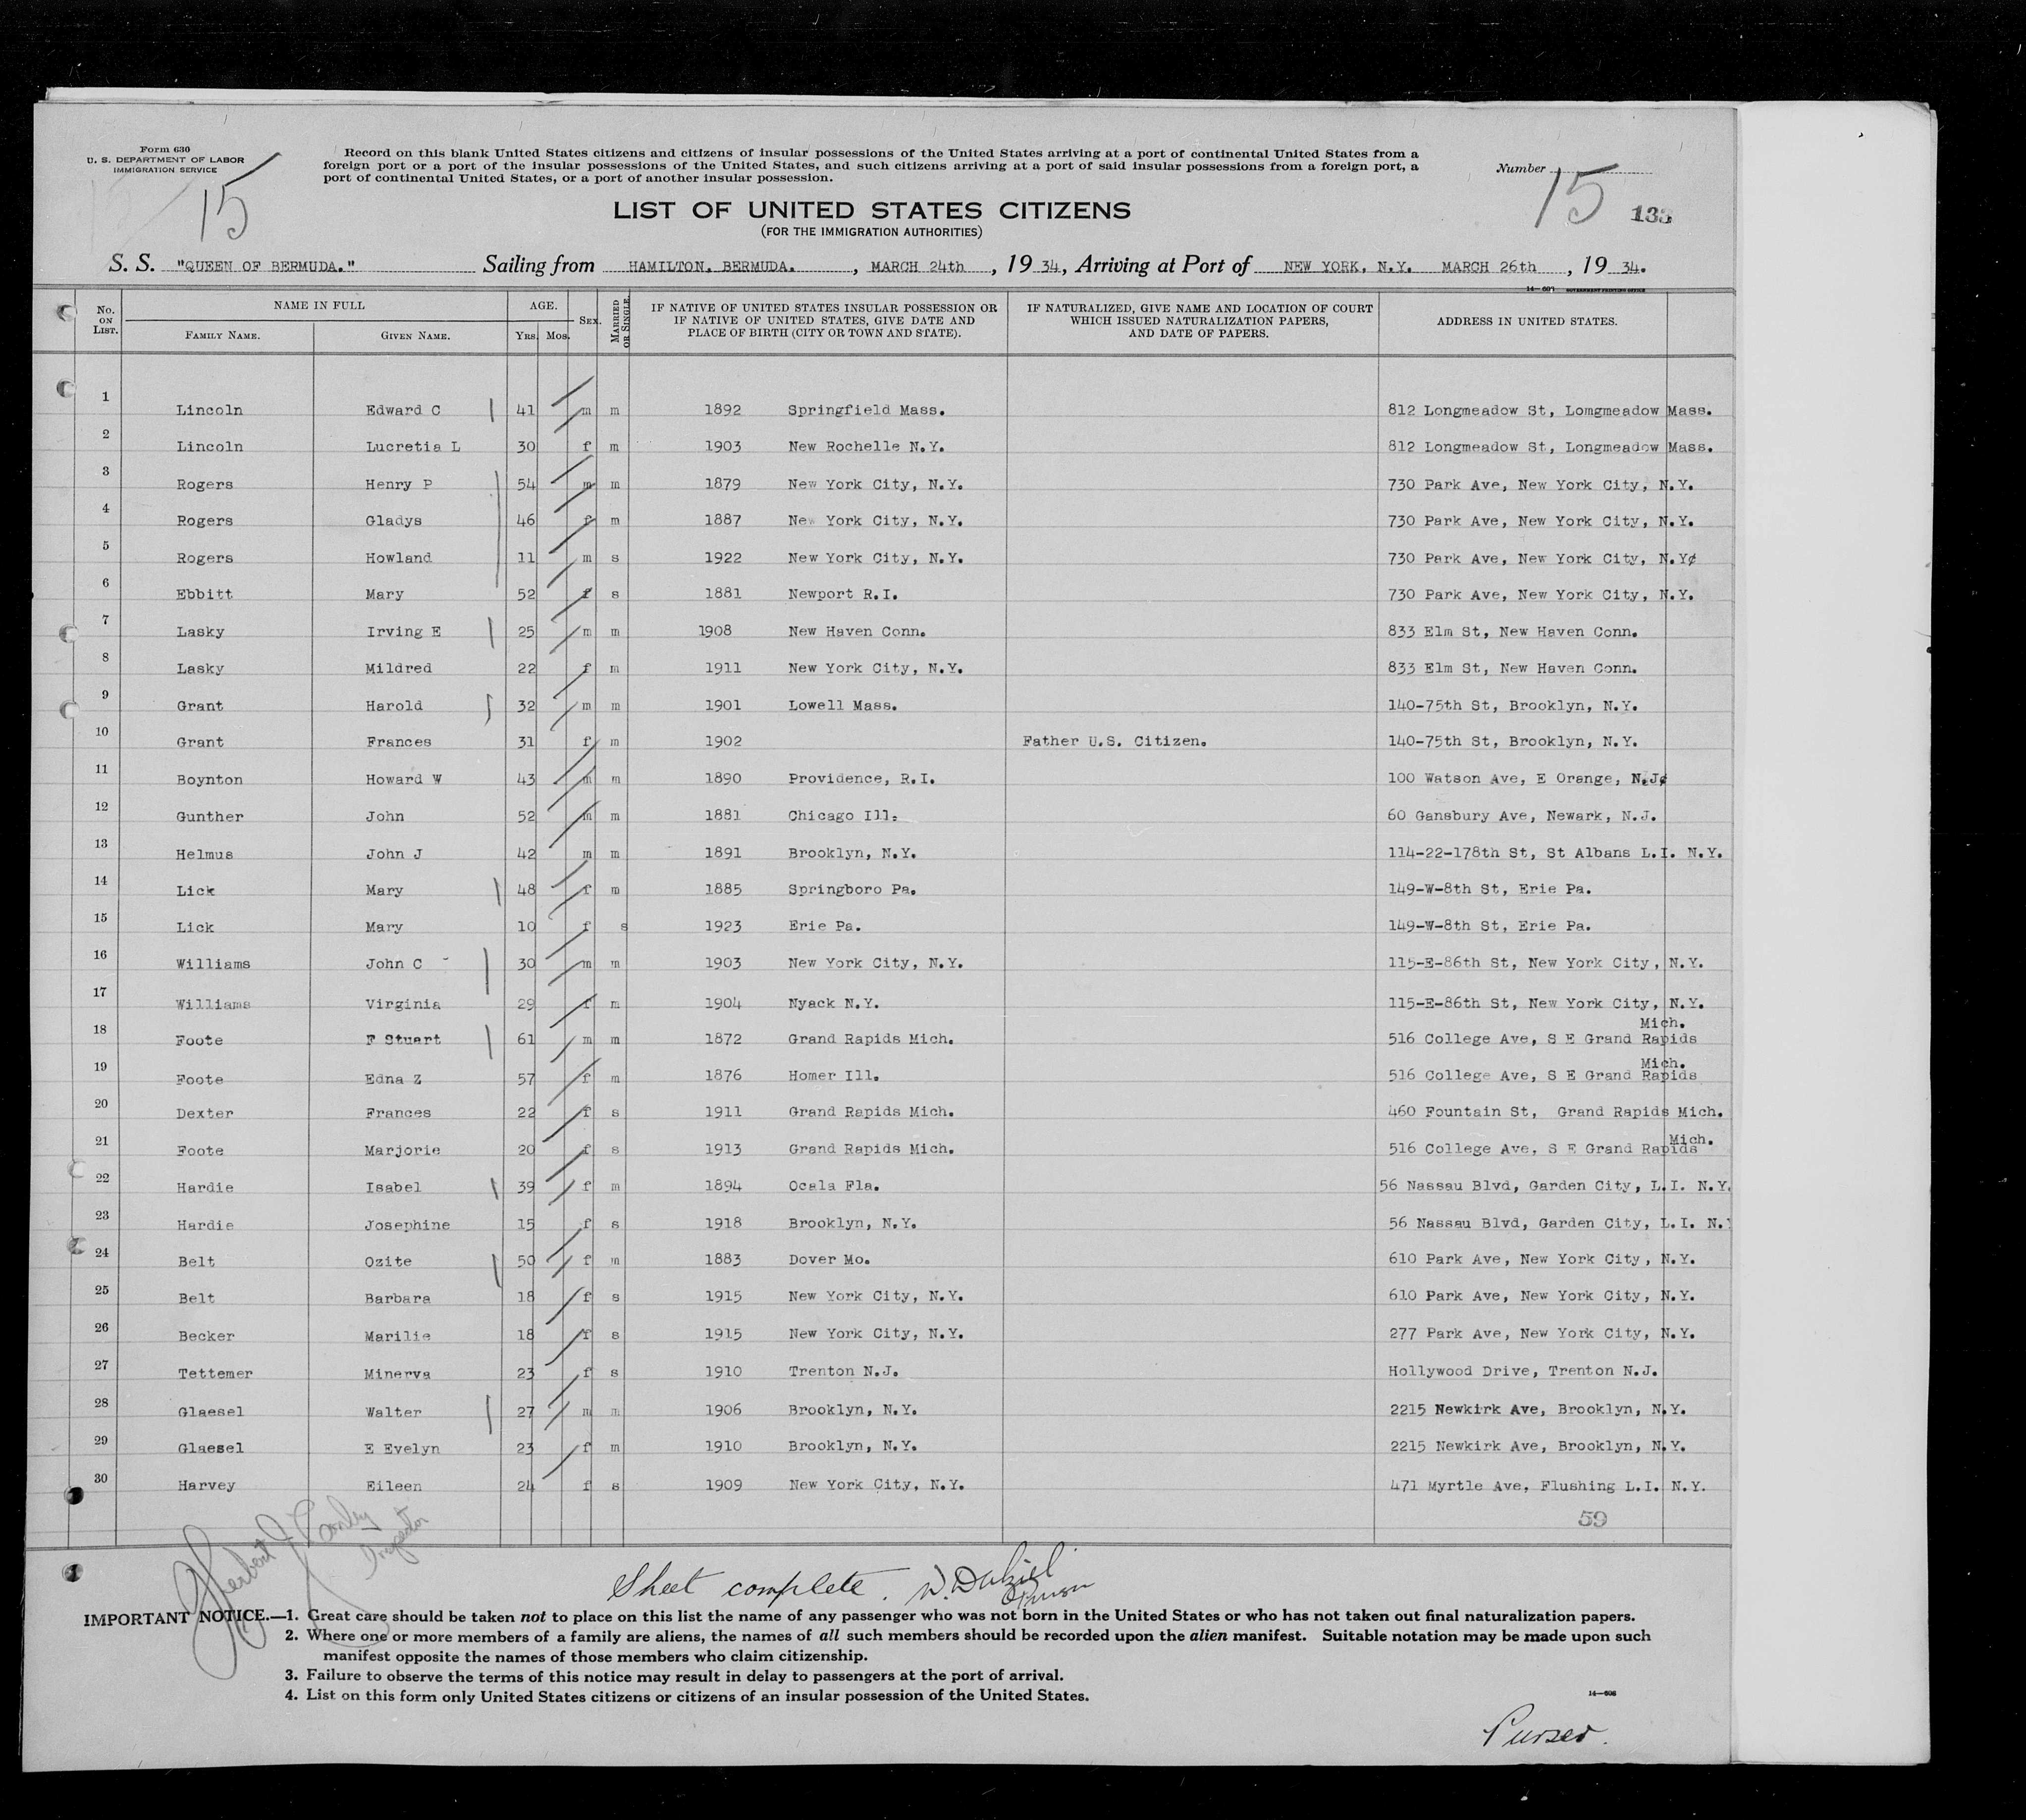 Form 630
U. S. DEPARTMENT OF LABOR
IMMIGRATION SERVICE
15
Record on this blank United States citizens and citizens of insular possessions of the United States arriving at a port of continental United States from a
foreign port or a port of the insular possessions of the United States, and such citizens arriving at a port of said insular possessions from a foreign port, a
port of continental United States, or a port of another insular possession.
Number 15 133
LIST OF UNITED STATES CITIZENS
(FOR THE IMMIGRATION AUTHORITIES)
S. S. "QUEEN OF BERMUDA." Sailing from HAMILTON. BERMUDA. , MARCH 24th , 19 34, Arriving at Port of NEW YORK, N.Y. MARCH 26th , 19 34.
GOVERNMENT PRINTING OFFICE
No. ON LIST. NAME IN FULL FAMILY NAME. GIVEN NAME. AGE. YRS. MOS. SEX. MARRIED OR SINGLE. IF NATIVE OF UNITED STATES INSULAR POSSESSION OR IF NATIVE OF UNITED STATES, GIVE DATE AND PLACE OF BIRTH (CITY OR TOWN AND STATE). IF NATURALIZED, GIVE NAME AND LOCATION OF COURT WHICH ISSUED NATURALIZATION PAPERS, AND DATE OF PAPERS. ADDRESS IN UNITED STATES.
1 Lincoln Edward C 41 m m 1892 Springfield Mass. 812 Longmeadow St, Lomgmeadow Mass.
2 Lincoln Lucretia L 30 f m 1903 New Rochelle N.Y. 812 Longmeadow St, Longmeadow Mass.
3 Rogers Henry P 54 m m 1879 New York City, N.Y. 730 Park Ave, New York City, N.Y.
4 Rogers Gladys 46 f m 1887 New York City, N.Y. 730 Park Ave, New York City, N.Y.
5 Rogers Howland 11 m s 1922 New York City, N.Y. 730 Park Ave, New York City, N.Y¢
6 Ebbitt Mary 52 f s 1881 Newport R.I. 730 Park Ave, New York City, N.Y.
7 Lasky Irving E 25 m m 1908 New Haven Conn. 833 Elm St, New Haven Conn.
8 Lasky Mildred 22 f m 1911 New York City, N.Y. 833 Elm St, New Haven Conn.
9 Grant Harold 32 m m 1901 Lowell Mass. 140-75th St, Brooklyn, N.Y.
10 Grant Frances 31 f m 1902 Father U.S. Citizen. 140-75th St, Brooklyn, N.Y.
11 Boynton Howard W 43 m m 1890 Providence, R.I. 100 Watson Ave, E Orange, N.J¢
12 Gunther John 52 m m 1881 Chicago Ill. 60 Gansbury Ave, Newark, N.J.
13 Helmus John J 42 m m 1891 Brooklyn, N.Y. 114-22-178th St, St Albans L.I. N.Y.
14 Lick Mary 48 f m 1885 Springboro Pa. 149-W-8th St, Erie Pa.
15 Lick Mary 10 f s 1923 Erie Pa. 149-W-8th St, Erie Pa.
16 Williams John C 30 m m 1903 New York City, N.Y. 115-E-86th St, New York City, N.Y.
17 Williams Virginia 29 f m 1904 Nyack N.Y. 115-E-86th St, New York City, N.Y.
18 Foote F Stuart 61 m m 1872 Grand Rapids Mich. 516 College Ave, S E Grand Rapids Mich.
19 Foote Edna Z 57 f m 1876 Homer Ill. 516 College Ave, S E Grand Rapids Mich.
20 Dexter Frances 22 f s 1911 Grand Rapids Mich. 460 Fountain St, Grand Rapids Mich.
21 Foote Marjorie 20 f s 1913 Grand Rapids Mich. 516 College Ave, S E Grand Rapids Mich.
22 Hardie Isabel 39 f m 1894 Ocala Fla. 56 Nassau Blvd, Garden City, L.I. N.Y.
23 Hardie Josephine 15 f s 1918 Brooklyn, N.Y. 56 Nassau Blvd, Garden City, L.I. N.
24 Belt Ozite 50 f m 1883 Dover Mo. 610 Park Ave, New York City, N.Y.
25 Belt Barbara 18 f s 1915 New York City, N.Y. 610 Park Ave, New York City, N.Y.
26 Becker Marilie 18 f s 1915 New York City, N.Y. 277 Park Ave, New York City, N.Y.
27 Tettemer Minerva 23 f s 1910 Trenton N.J. Hollywood Drive, Trenton N.J.
28 Glaesel Walter 27 m m 1906 Brooklyn, N.Y. 2215 Newkirk Ave, Brooklyn, N.Y.
29 Glaesel E Evelyn 23 f m 1910 Brooklyn, N.Y. 2215 Newkirk Ave, Brooklyn, N.Y.
30 Harvey Eileen 24 f s 1909 New York City, N.Y. 471 Myrtle Ave, Flushing L.I. N.Y.
59
Herbert J Conley
Inspector
Sheet complete.
Purser
IMPORTANT NOTICE.—1. Great care should be taken not to place on this list the name of any passenger who was not born in the United States or who has not taken out final naturalization papers.
2. Where one or more members of a family are aliens, the names of all such members should be recorded upon the alien manifest. Suitable notation may be made upon such
manifest opposite the names of those members who claim citizenship.
3. Failure to observe the terms of this notice may result in delay to passengers at the port of arrival.
4. List on this form only United States citizens or citizens of an insular possession of the United States.
Purser.